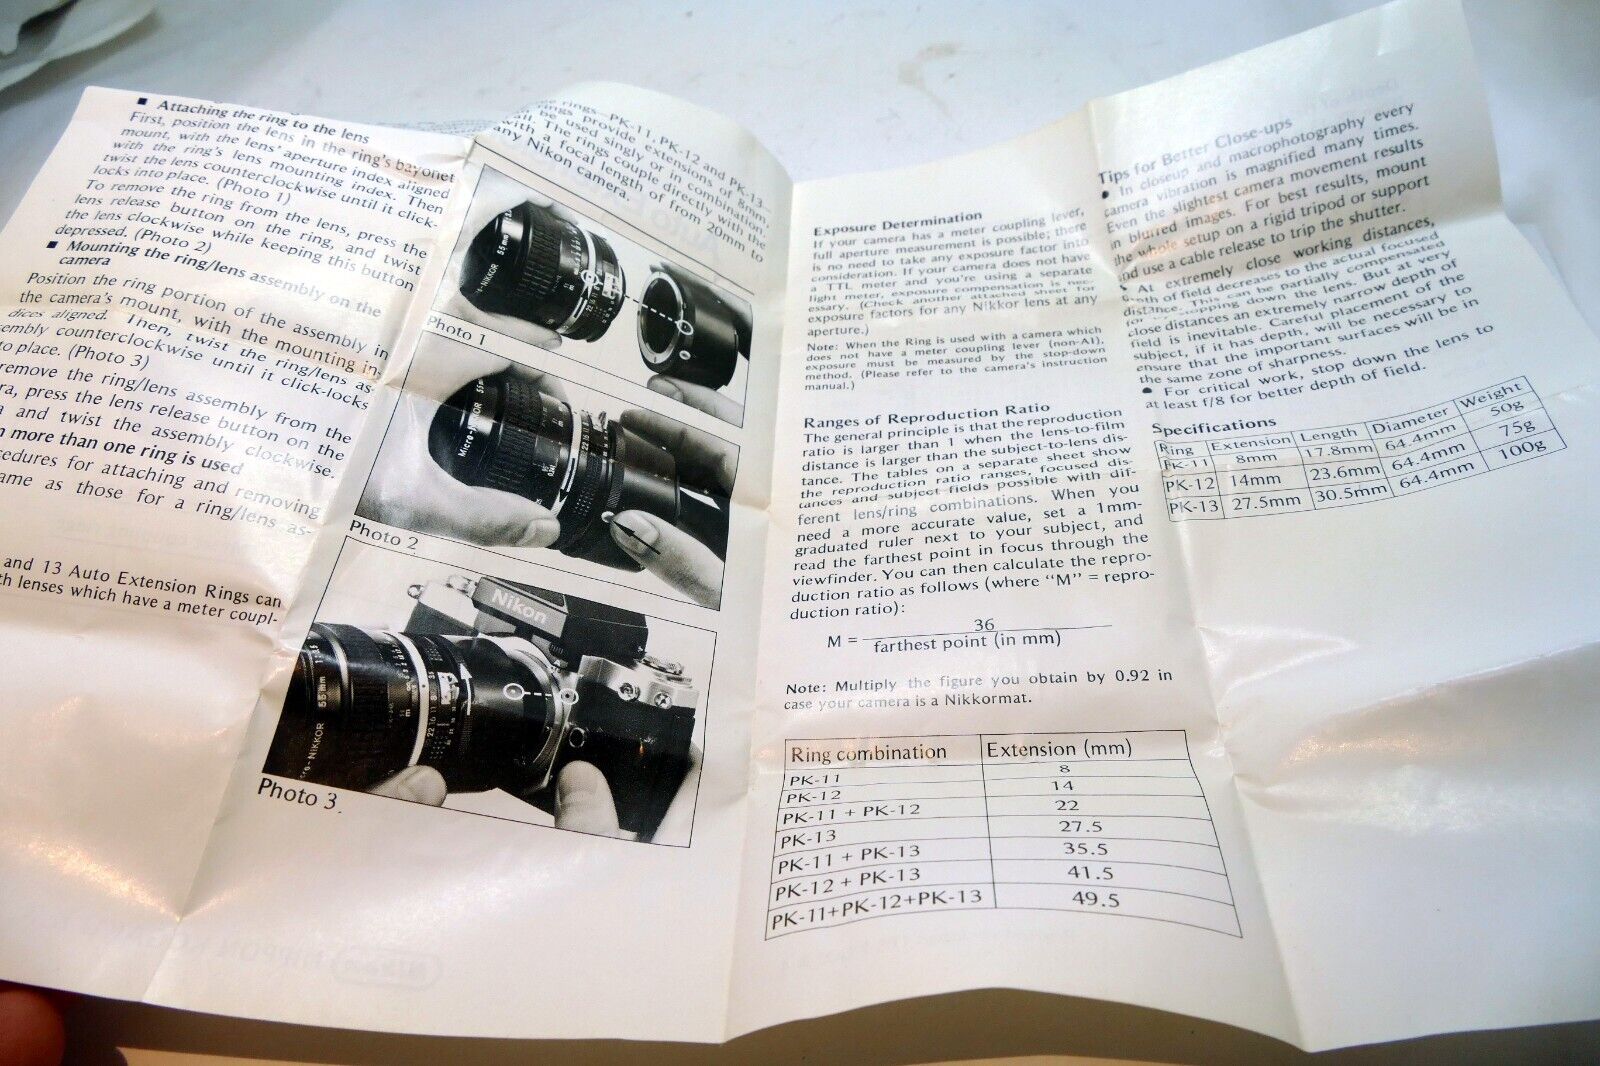 ■ Attaching the ring to the lens
First, position the lens in the ring's bayonet
mount, with the lens' aperture index aligned
with the ring's lens mounting index. Then
twist the lens counterclockwise until it click-
locks into place. (Photo 1)
To remove the ring from the lens, press the
lens release button on the ring, and twist
the lens clockwise while keeping this button
depressed. (Photo 2)
■ Mounting the ring/lens assembly on the
camera
Position the ring portion of the assembly in
the camera's mount, with the mounting in-
dices aligned. Then, twist the ring/lens as-
sembly counterclockwise until it click-locks
to place. (Photo 3)
remove the ring/lens assembly from the
ra, press the lens release button on the
and twist the assembly clockwise.
more than one ring is used
cedures for attaching and removing
ame as those for a ring/lens as-
and 13 Auto Extension Rings can
th lenses which have a meter coupl-
rings. PK-11, PK-12 and PK-13
rings provide extensions of 8mm,
be used singly or in combination.
all. The rings couple directly with the
with a focal length of from 20mm to
any Nikon camera.
NIKKOR 55mm
Photo 1
Micro-NIKKOR 55mm
Photo 2
Nikon
NIKKOR 55mm
Photo 3
Exposure Determination
If your camera has a meter coupling lever,
full aperture measurement is possible; there
is no need to take any exposure factor into
consideration. If your camera does not have
a TTL meter and you're using a separate
light meter, exposure compensation is nec-
essary. (Check another attached sheet for
exposure factors for any Nikkor lens at any
aperture.)
Note: When the Ring is used with a camera which
does not have a meter coupling lever (non-AI),
exposure must be measured by the stop-down
method. (Please refer to the camera's instruction
manual.)
Ranges of Reproduction Ratio
The general principle is that the reproduction
ratio is larger than 1 when the lens-to-film
distance is larger than the subject-to-lens dis-
tance. The tables on a separate sheet show
the reproduction ratio ranges, focused dis-
tances and subject fields possible with dif-
ferent lens/ring combinations. When you
need a more accurate value, set a 1mm-
graduated ruler next to your subject, and
read the farthest point in focus through the
viewfinder. You can then calculate the repro-
duction ratio as follows (where "M" = repro-
duction ratio):
36
M =
farthest point (in mm)
Note: Multiply the figure you obtain by 0.92 in
case your camera is a Nikkormat.
Ring combination Extension (mm)
PK-11 8
PK-12 14
PK-11 + PK-12 22
PK-13 27.5
PK-11 + PK-13 35.5
PK-12 + PK-13 41.5
PK-11+PK-12+PK-13 49.5
Tips for Better Close-ups
● In closeup and macrophotography every
camera vibration is magnified many times.
Even the slightest camera movement results
in blurred images. For best results, mount
the whole setup on a rigid tripod or support
and use a cable release to trip the shutter.
● At extremely close working distances,
depth of field decreases to the actual focused
distance. This can be partially compensated
for stopping down the lens. But at very
close distances an extremely narrow depth of
field is inevitable. Careful placement of the
subject, if it has depth, will be necessary to
ensure that the important surfaces will be in
the same zone of sharpness.
● For critical work, stop down the lens to
at least f/8 for better depth of field.
Specifications
Ring Extension Length Diameter Weight
PK-11 8mm 17.8mm 64.4mm 50g
PK-12 14mm 23.6mm 64.4mm 75g
PK-13 27.5mm 30.5mm 64.4mm 100g